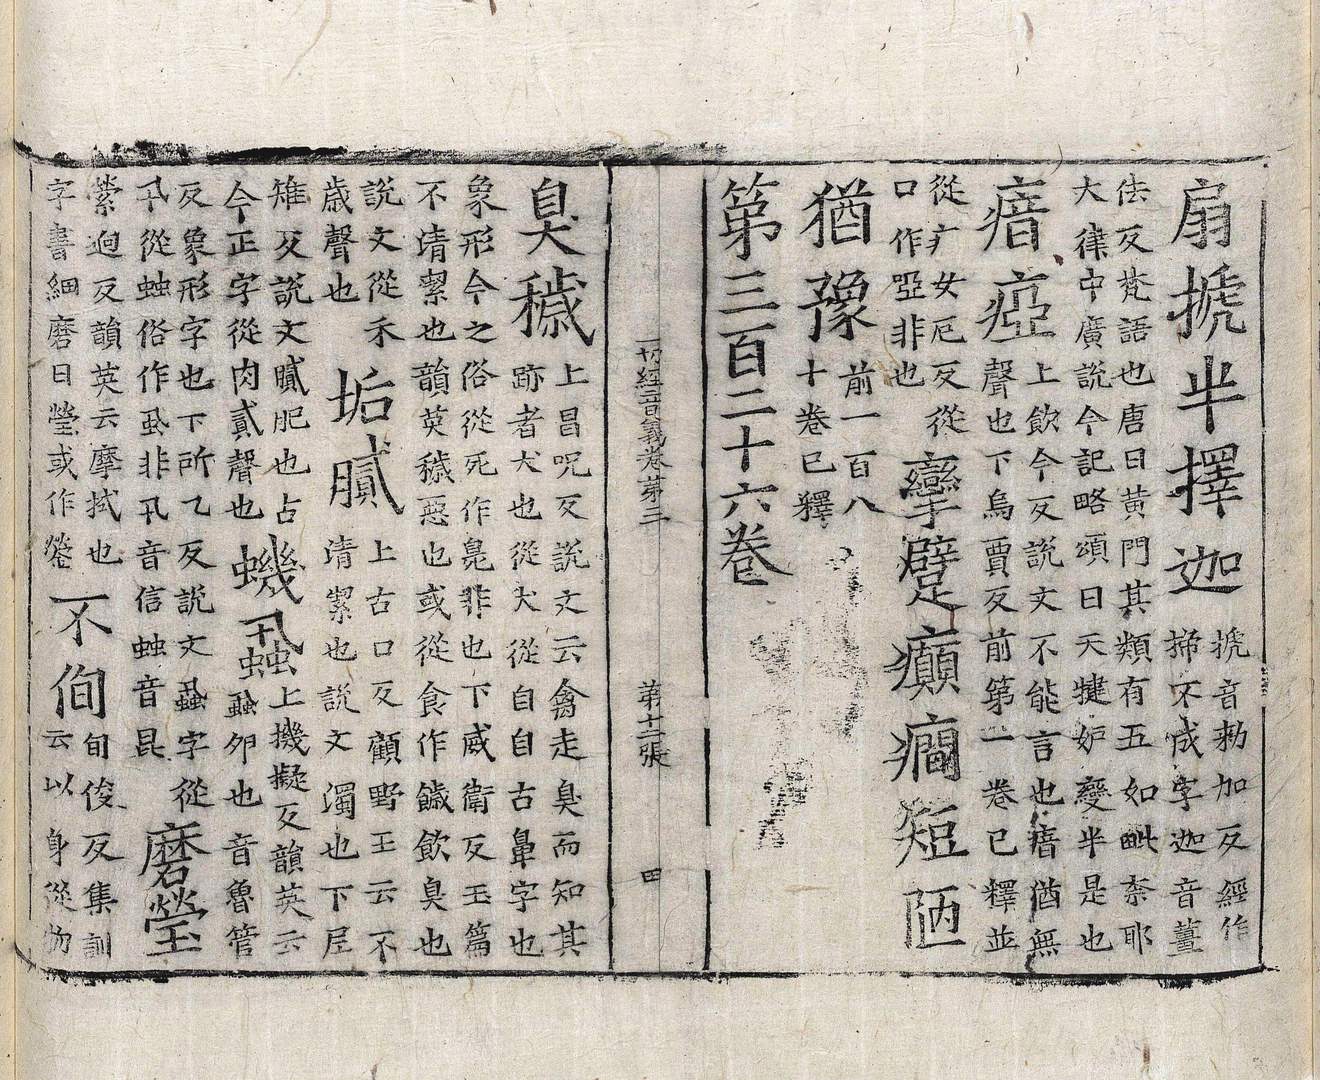 扇搋半擇迦 搋音勑加反經作
搋不成字迦音薑
佉反梵語也唐曰黃門其類有五如毗柰耶
大律中廣說今記略頌曰天犍妒變半是也
瘖瘂 上飲今反說文不能言也瘖猶無
聲也下烏賈反前第一卷已釋並
從疒女厄反從
口作啞非也
攣躄癲癎短陋
猶豫 前一百八
十卷已釋
第三百二十六卷
一切經音義卷第三 第十二張 田
臭穢 上昌呪反說文云禽走臭而知其
跡者犬也從犬從自自古鼻字也
象形今之俗從死作臰非也下威衛反玉篇
不清絜也韻英穢惡也或從食作饖飲臭也
說文從禾
歲聲也
垢膩 上古口反顧野王云不
清絜也說文濁也下尼
雉反說文膩肥也占
今正字從肉貳聲也
蟣蝨 上機擬反韻英云
蝨卵也音魯管
反象形字也下所乙反說文蝨字從
卂從䖵俗作虱非卂音信䖵音昆
磨瑩
縈迥反韻英云摩拭也
字書細磨曰瑩或作鎣
不侚 旬俊反集訓
云以身從物